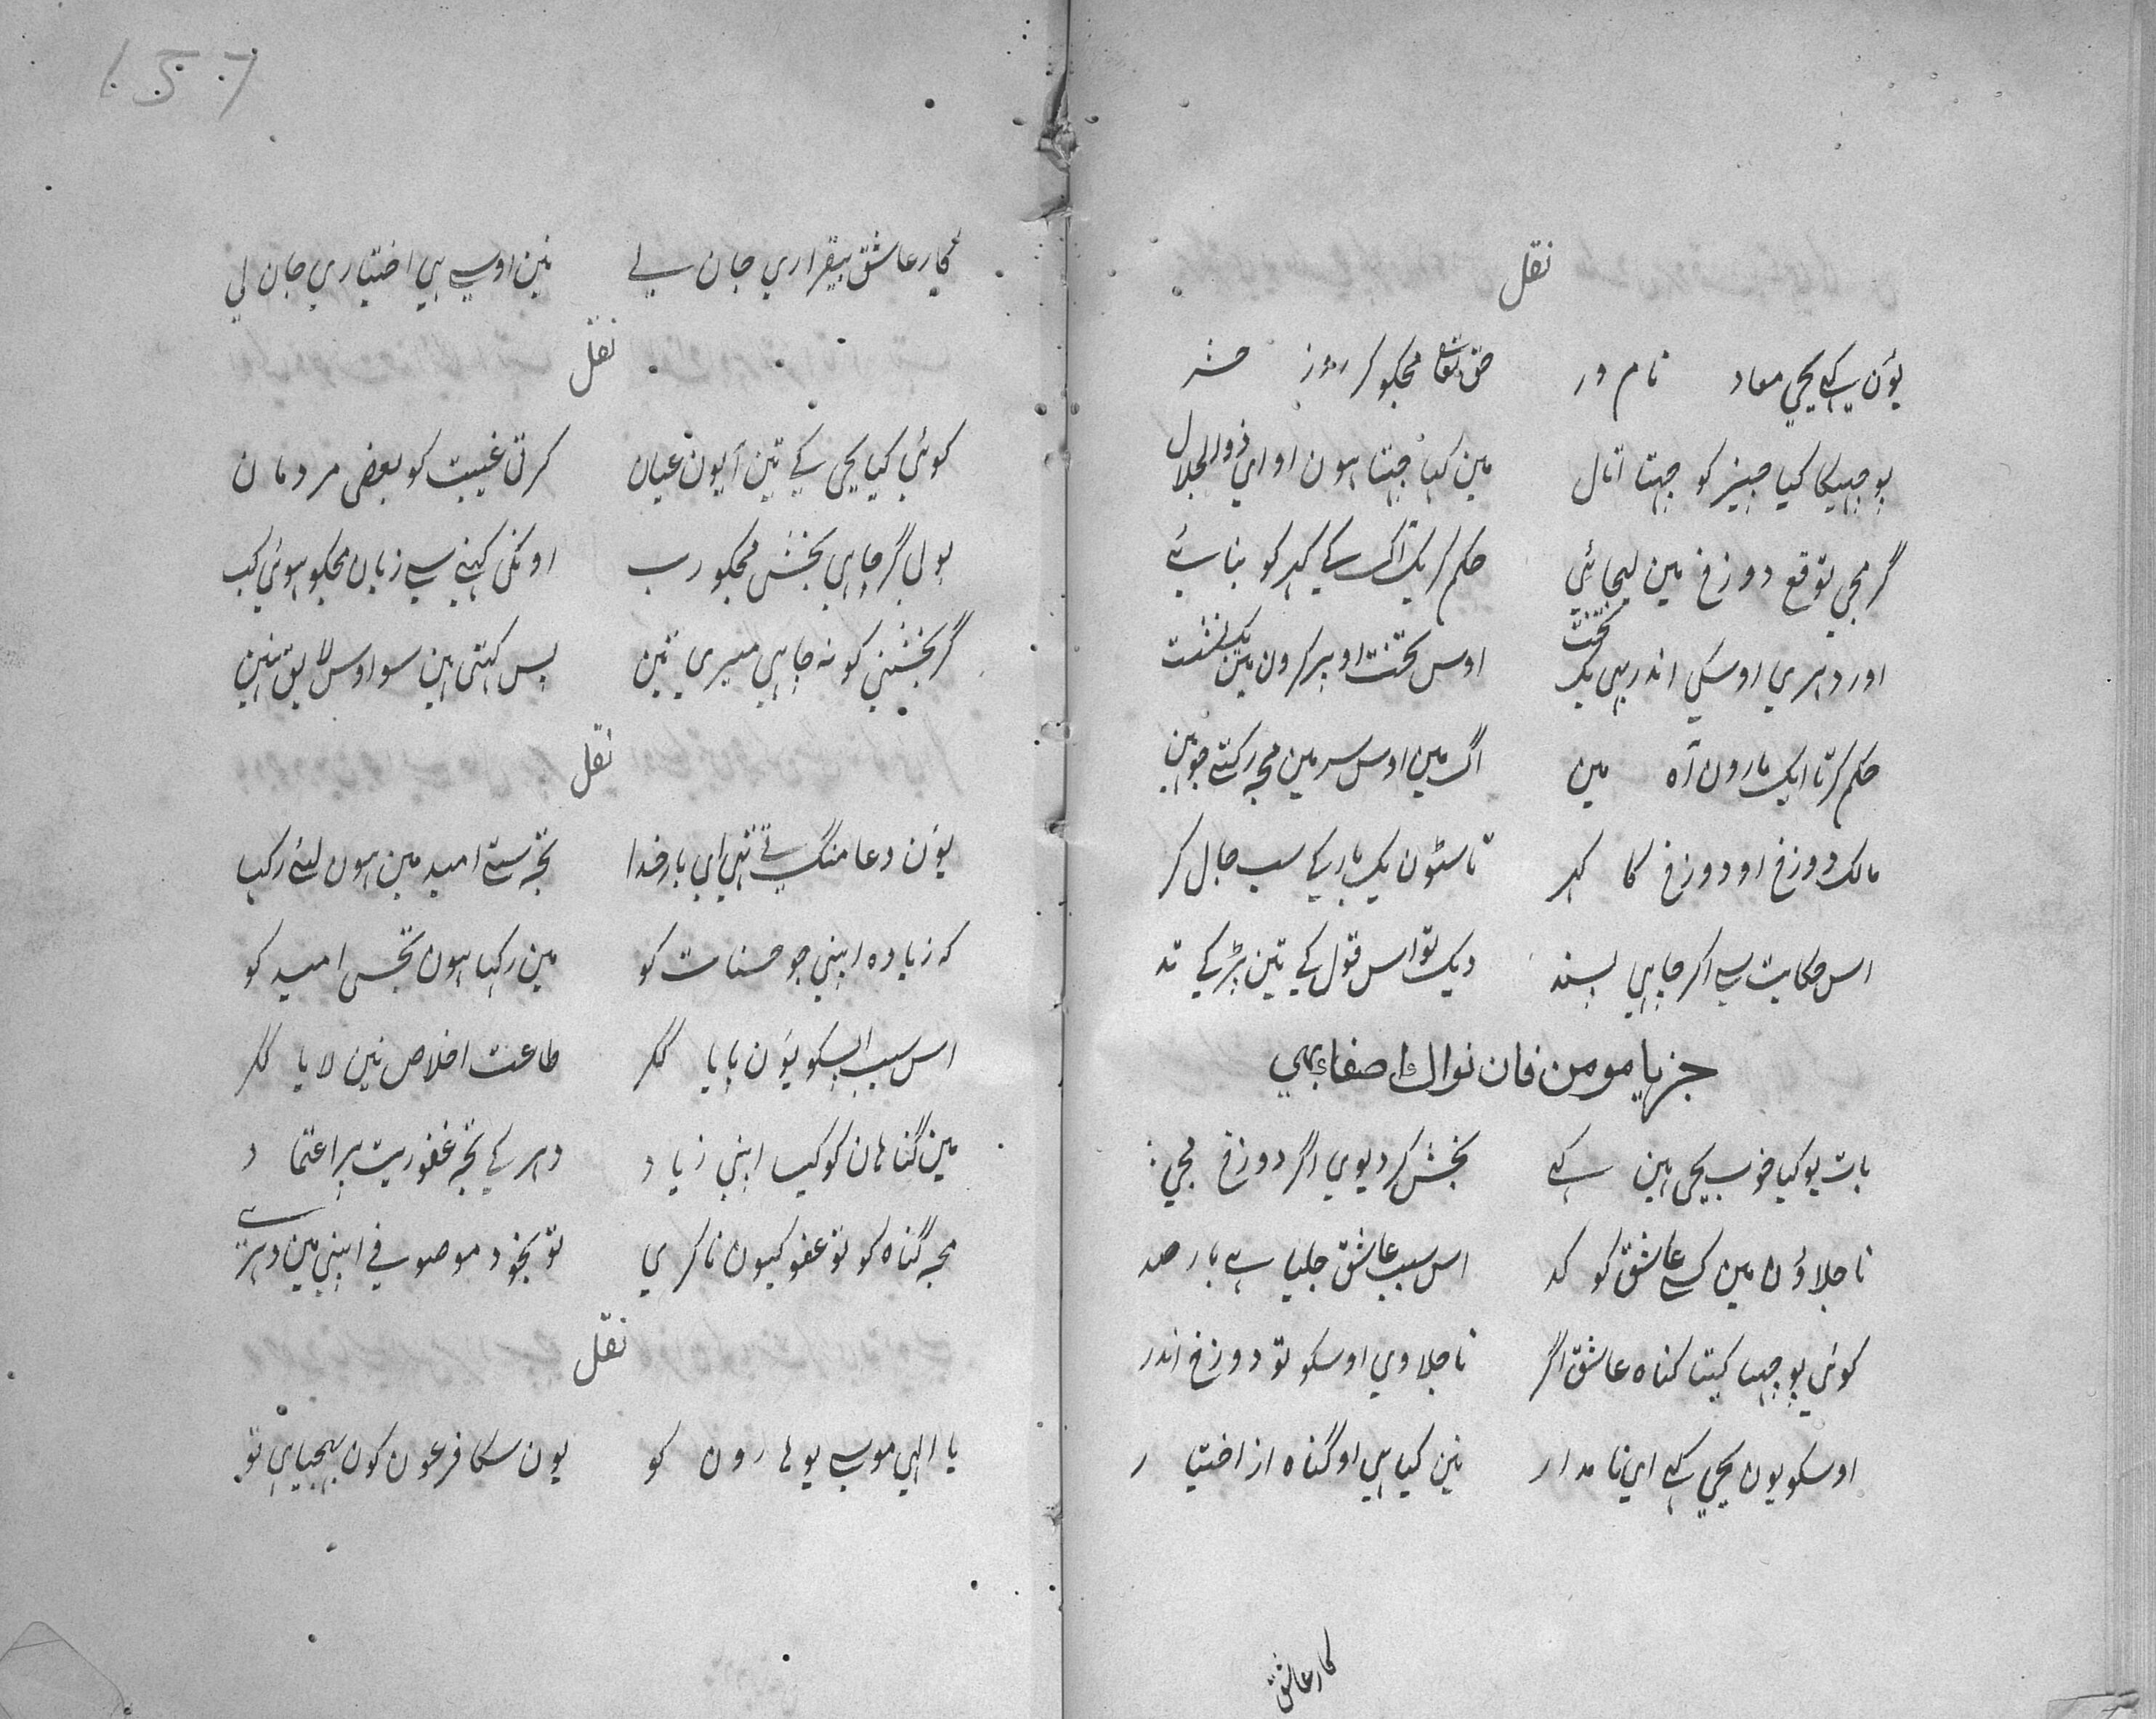 نقل
یوٗن کہے یحیٰ معاد نام ور حق تعالیٰ مجکو کر روز حشر
پوچھیگا کیا چیز کو چہتا اتال مین کہا چہتا ہون او ای ذوالجلال
گر مجی توقع دوزخ مین لیجائی حکم کر یک آگ کے گہر کو بنائے
اور دہری اوسکی اندر بہی یک تخت اوس تخت اوپر کرون مین یک نشت
حکم کرتا ایک مارون آہ مین اگ مین اوس سر مین مجہ رکتے جو ہین
مالک دوزخ او دوزخ کا گہر تا سٹون یک بار کے سب جال کر
اس حکایت سے اگر چاہی پسند دیک تو اس قول کے تین پڑ کے تد
بات یو کیا خوب یحی ہین کہے بخش کر دیوی اگر دوزخ مجی
نا جلاؤن مین کسے عاشق کو کد اس سبب عاشق جلیا ہے بار صد
کوئی پوچہا کیتا گناہ عاشق اگر نا جلاوی اوسکو تو دوزخ اندر
اوسکو یون یحیٰ کہے ای نامدار نین کیا ہی او گناہ از اختیار
کار عاشق
157
کار عاشق بیقراری جان لے نین اوسے ہی اختیاری جان لی
نقل
کوئی کہا یحی کے تین آ یون عیان کرتی غیبت کو بعض مردمان
بول گر چاہی بخشش مجکو رب اونکی کہنے سے زیان مجکو ہوئی کب
گر بخشنی کو نہ چاہی میری تین پس کہتی ہین سو اوس لایق نہین
نقل
یوٗن دعا منگتے تہی ای بار خدا تجہ ستے امید مین ہون لئے رکہا
کہ زیادہ اپنی جو حسنات کو مین رکہا ہون تجس امید کو
اس سبب اسکو یوٗن پایا مگر طاعت اخلاص نین لایا مگر
مین گناہان کو کیا اپنی زیاد دہر کے تجہ غفوریت پر اعتماد
مجہ گناہ کو تو عفو کیون نا کری تو بخود موصوفی اپنی مین دہرتے
نقل
یا الہی موسے یو ہارون کو یون سگا فرعون کون بہیجیا ہی تو